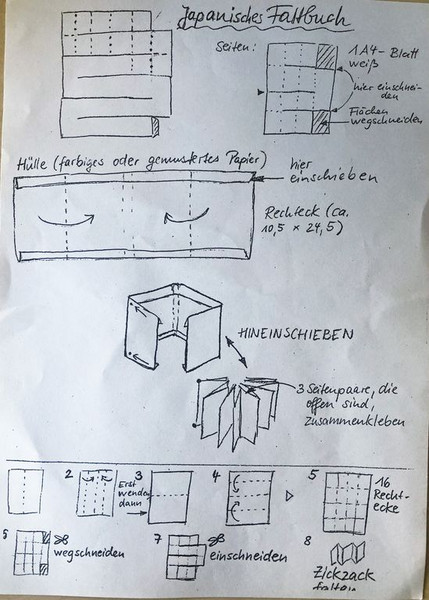 Japanisches Faltbuch
Seiten:
1 A4-Blatt
weiß
hier einschnei-
den
Flächen
wegschneiden
Hülle (farbiges oder gemustertes Papier)
hier
einschieben
Rechteck (ca.
10,5 x 24,5)
HINEINSCHIEBEN
3 Seitenpaare, die
offen sind,
zusammenkleben
2
Erst
wenden
dann
3
4
5
16
Recht-
ecke
6
wegschneiden
7
einschneiden
8
Zickzack
falten